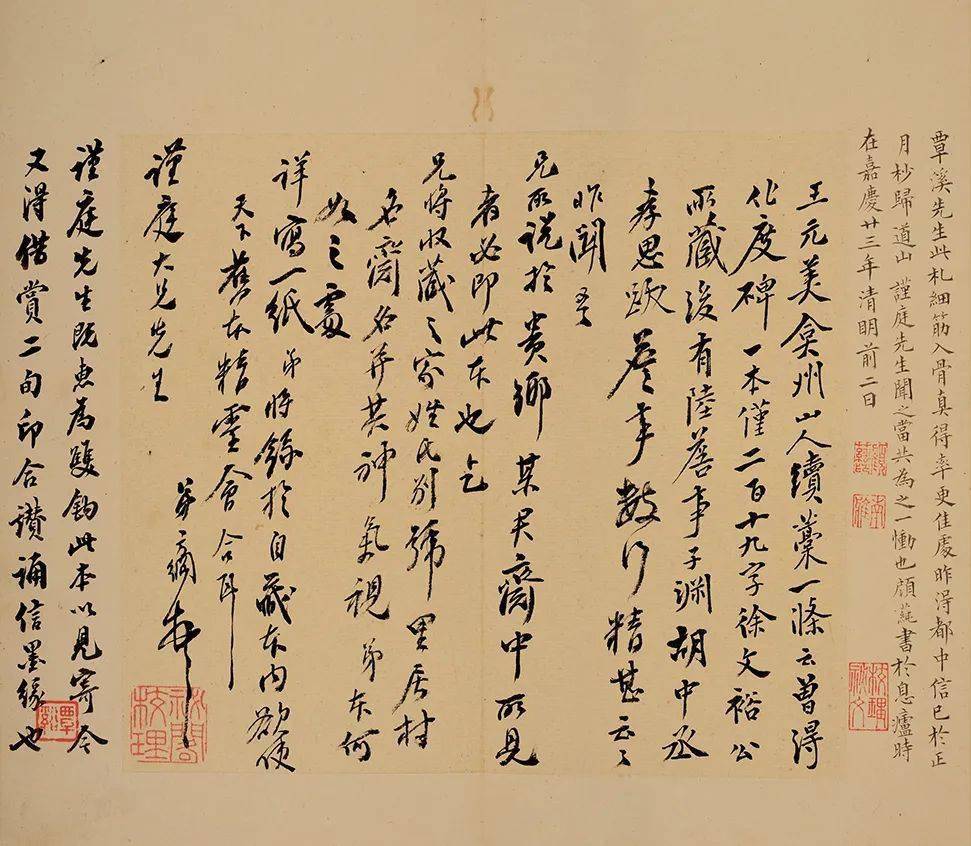 覃溪先生此札細筋入骨真得率更佳處昨得都中信已於正
月杪歸道山 謹庭先生聞之當共為之一慟也顧蒓書於息廬時
在嘉慶廿三年清明前二日
王元美弇州山人續藁一條云曾得
化度碑一本僅二百十九字徐文裕公
所藏後有陸詹事子淵胡中丞
孝思跋詹事數行精甚云云
昨聞
兄所說於貴鄉某君齋中所見
者必即此本也乞
兄將收藏之家姓氏別號里居村
名齋名并其神氣視弟本何
如之處
詳寫一紙弟將錄於自藏本內欲使
天下舊本精靈會合耳
謹庭大兄先生
弟方綱
謹庭先生既惠為雙鈎此本以見寄今
又得借賞二句印合讚誦信墨緣也
覃谿